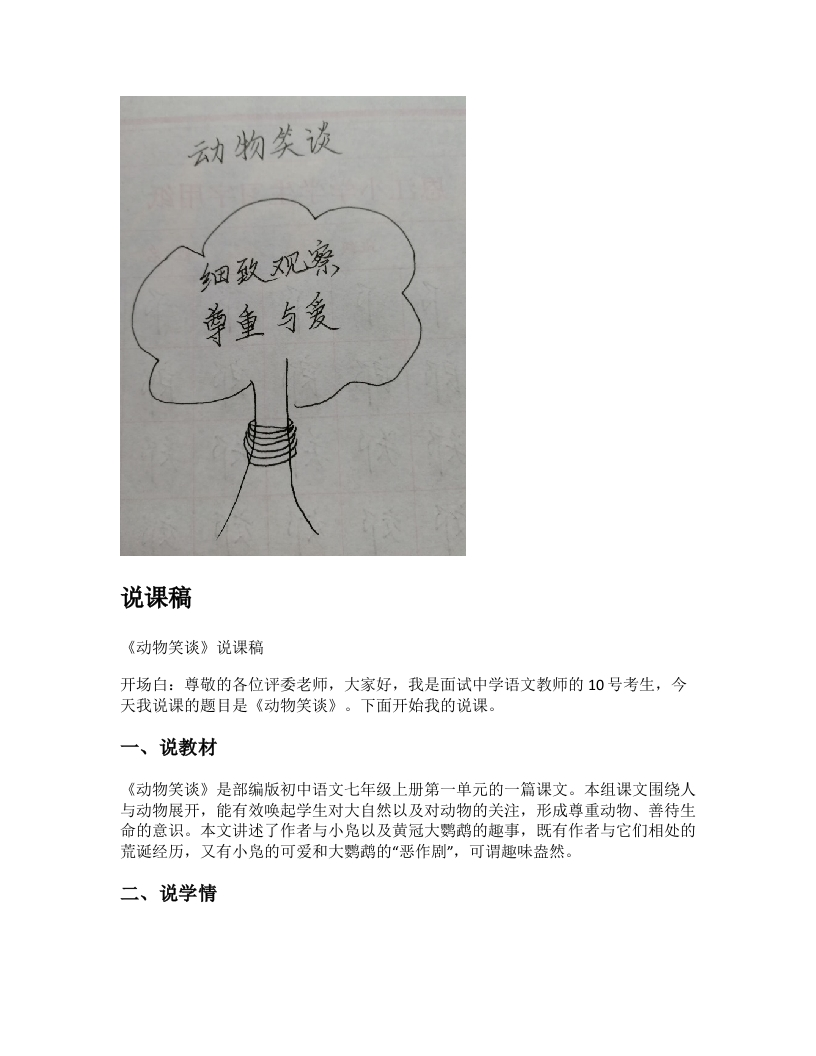 动物笑谈
细致观察
尊重与爱
说课稿
《动物笑谈》说课稿
开场白：尊敬的各位评委老师，大家好，我是面试中学语文教师的 10 号考生，今
天我说课的题目是《动物笑谈》。下面开始我的说课。
一、说教材
《动物笑谈》是部编版初中语文七年级上册第一单元的一篇课文。本组课文围绕人
与动物展开，能有效唤起学生对大自然以及对动物的关注，形成尊重动物、善待生
命的意识。本文讲述了作者与小凫以及黄冠大鹦鹉的趣事，既有作者与它们相处的
荒诞经历，又有小凫的可爱和大鹦鹉的“恶作剧”，可谓趣味盎然。
二、说学情